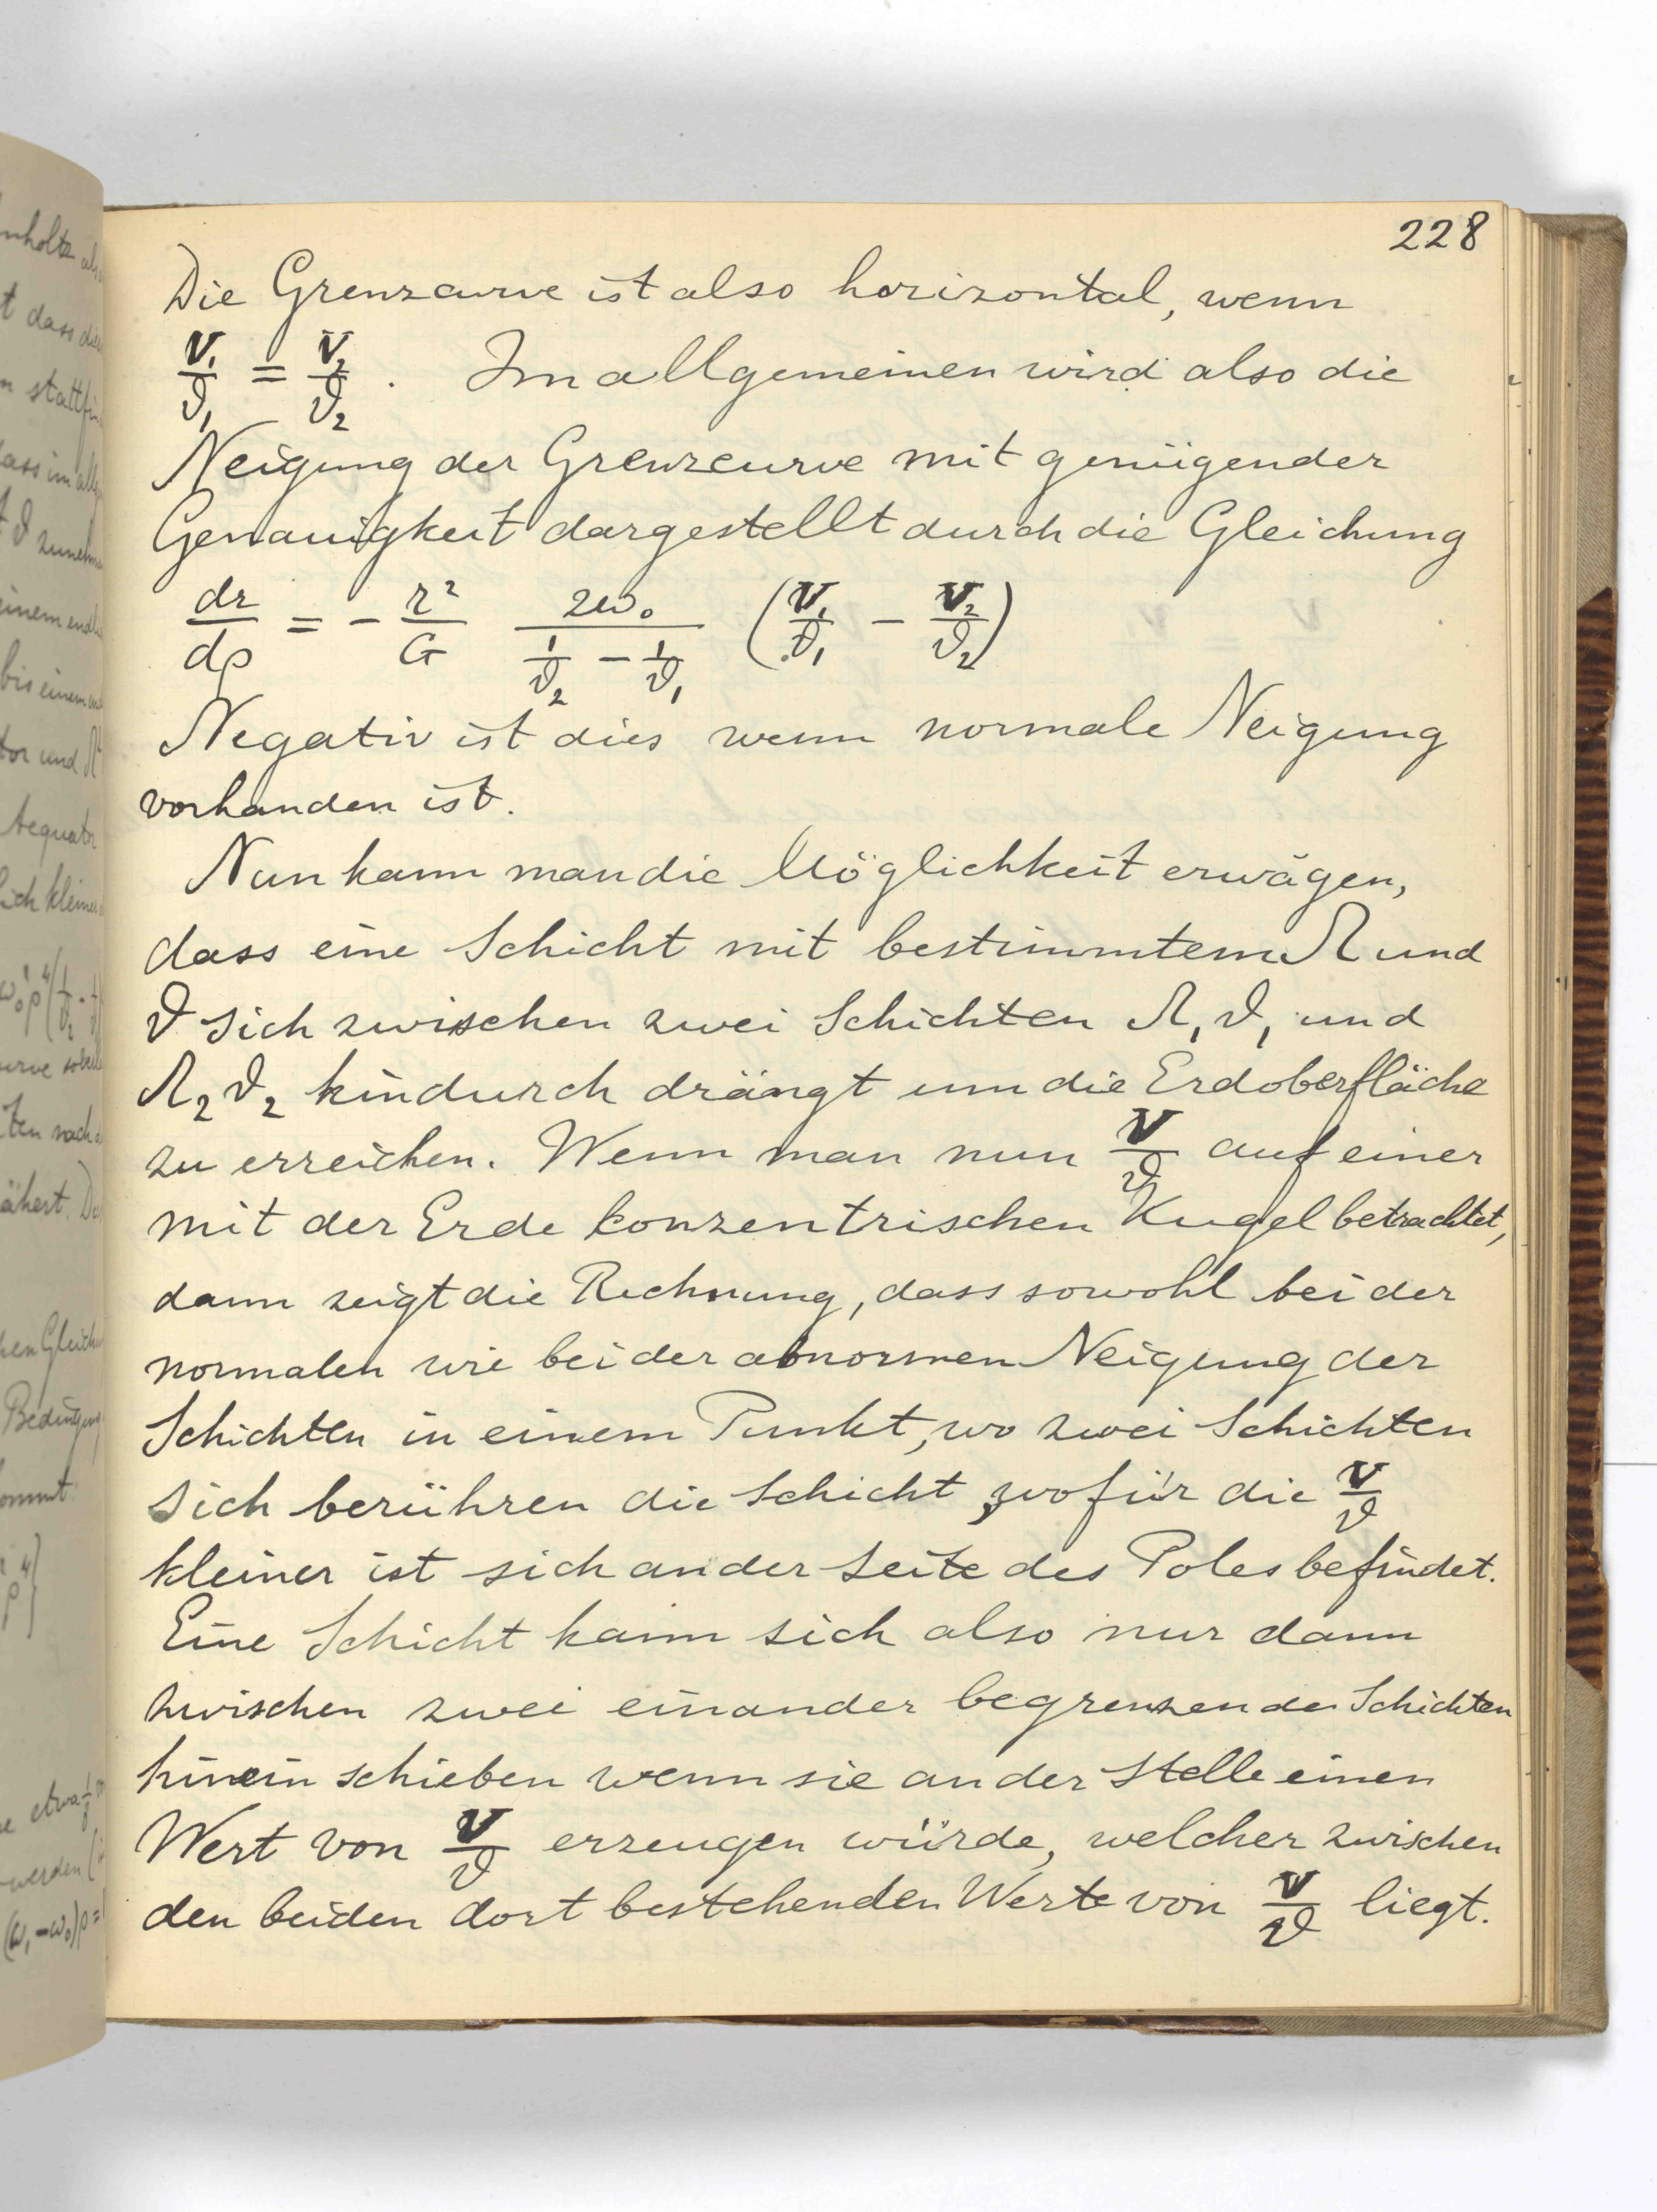 228
Die Grenzcurve ist also horizontal, wenn
V₁/ϑ₁ = V₂/ϑ₂ . Im allgemeinen wird also die
Neigung der Grenzcurve mit genügender
Genauigkeit dargestellt durch die Gleichung
dr/dρ = - r²/G 2ω₀/(1/ϑ₂ - 1/ϑ₁) (V₁/ϑ₁ - V₂/ϑ₂)
Negativ ist dies wenn normale Neigung
vorhanden ist.
Nun kann man die Möglichkeit erwägen,
dass eine Schicht mit bestimmtem Ω und
ϑ sich zwischen zwei Schichten Ω₁ ϑ₁ und
Ω₂ ϑ₂ hindurch drängt um die Erdoberfläche
zu erreichen. Wenn man nun V/ϑ auf einer
mit der Erde konzentrischen Kugel betrachtet,
dann zeigt die Rechnung, dass sowohl bei der
normalen wie bei der abnormen Neigung der
Schichten in einem Punkt, wo zwei Schichten
sich berühren die Schicht, wofür die V/ϑ
kleiner ist sich an der Seite des Poles befindet.
Eine Schicht kann sich also nur dann
zwischen zwei einander begrenzenden Schichten
hinein schieben wenn sie an der Stelle einen
Wert von V/ϑ erzeugen würde, welcher zwischen
den beiden dort bestehenden Werte von V/ϑ liegt.